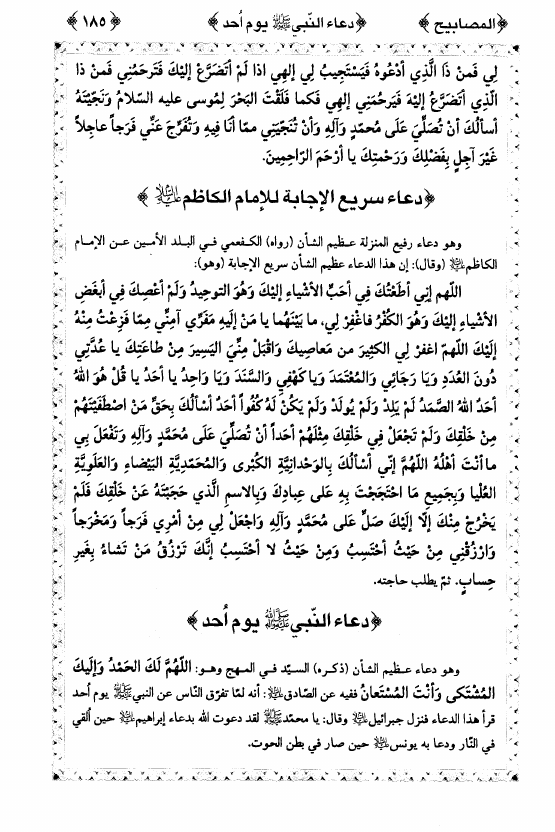 ﴿المصابيح﴾ ﴿دعاء النّبيﷺ يوم اُحد﴾ ﴿١٨٥﴾
لِي فَمَنْ ذَا الَّذِي أدْعُوهُ فَيَسْتَجِيبُ لِي إلهِي اذا لَمْ أتَضَرَّعْ إليْكَ فَتَرحَمُنِي فَمَنْ ذا
الَّذِي أتَضَرَّعُ إلَيْهَ فَيَرحَمُنِي إلهِي فَكما فَلَقْتَ البَحْرَ لِمُوسى عليه السّلامُ وَنَجَّيْتَهُ
أسألُكَ أنْ تُصَلِّيَ عَلَى مُحمّدٍ وَآلِهِ وَأنْ تُنَجِّيَنِي ممّا أنَا فِيهِ وَتُفَرِّجَ عَنِّي فَرَجاً عاجِلاً
غَيْرَ آجِلٍ بِفَضْلِكَ وَرَحْمتِكَ يا أرْحَمَ الرّاحِمِينَ.
﴿دعاء سريع الإجابة للإمام الكاظم عليه السلام﴾
وهو دعاء رفيع المنزلة عظيم الشأن (رواه) الكفعمي في البلد الأمين عن الإمام
الكاظم عليه السلام (وقال): إن هذا الدعاء عظيم الشأن سريع الإجابة (وهو):
اللّهم إني أطَعْتُكَ فِي أحَبِّ الأشْياءِ إليْكَ وَهُوَ التوحِيدُ وَلَمْ أعْصِكَ فِي أبغَضِ
الأشْياءِ إليْكَ وَهُوَ الكُفْرُ فاغْفِر لِي، ما بَيْنَهُما يا مَنْ إلَيهِ مَفَرِّي آمِنِّي مِمّا فَزِعْتُ مِنْهُ
إلَيْكَ اللّهمّ اغفر لِي الكثِيرَ من مَعاصِيكَ وَاقْبَلْ مِنِّيَ اليَسِيرَ مِنْ طاعَتِكَ يا عُدَّتِي
دُونَ العُدَدِ وَيَا رَجَائِي وَالمُعْتَمَدَ وَيا كهْفِي وَالسَّنَدَ وَيَا وَاحِدُ يا أحَدُ يا قُلْ هُوَ اللهُ
أحَدٌ اللهُ الصَّمَدُ لَمْ يَلِدْ وَلَمْ يُولَدْ وَلَمْ يَكُنْ لَهُ كُفُواً أحَدٌ أسْألُكَ بِحَقِّ مَنْ اصْطَفَيْتَهُمْ
مِنْ خَلْقِكَ وَلَمْ تَجْعَلْ فِي خَلْقِكَ مِثْلَهُمْ أحَداً أنْ تُصَلِّيَ عَلَى مُحَمَّدٍ وَآلِهِ وَتَفْعَلَ بِي
ما أنْتَ أهْلُهُ اللّهُمَّ إنّي أسألُكَ بِالوَحْدانِيَّةِ الكُبْرى وَالمُحَمَّدِيَّةِ البَيْضاءِ وَالعَلَوِيَّةِ
العُلْيا وَبِجَمِيعِ مَا احْتَجَجْتَ بِهِ عَلى عِبادِكَ وَبِالاسمِ الَّذي حَجَبْتَهُ عَنْ خَلْقِكَ فَلَمْ
يَخْرُجْ مِنْكَ إلّا إلَيْكَ صَلِّ عَلى مُحَمَّدٍ وَآلِهِ وَاجْعَلْ لِي مِنْ أمْرِي فَرَجاً وَمَخْرَجاً
وَارْزُقْنِي مِنْ حَيْثُ أحْتَسِبُ وَمِنْ حَيْثُ لا أحْتَسِبُ إنَّكَ تَرْزُقُ مَنْ تَشاءُ بِغَيرِ
حِسابٍ. ثمّ يطلب حاجته.
﴿دعاء النّبيﷺ يوم اُحد﴾
وهو دعاء عظيم الشأن (ذكره) السيّد في المهج وهو: اللّهُمَّ لَكَ الحَمْدُ وَإليكَ
المُشْتَكى وَأنْتَ المُسْتَعانُ ففيه عن الصادق عليه السلام: أنه لمّا تفرّق النّاس عن النبيﷺ يوم اُحد
قرأ هذا الدعاء فنزل جبرائيل عليه السلام وقال: يا محمّدﷺ لقد دعوت الله بدعاء إبراهيم عليه السلام حين اُلقي
في النّار ودعا به يونس عليه السلام حين صار في بطن الحوت.